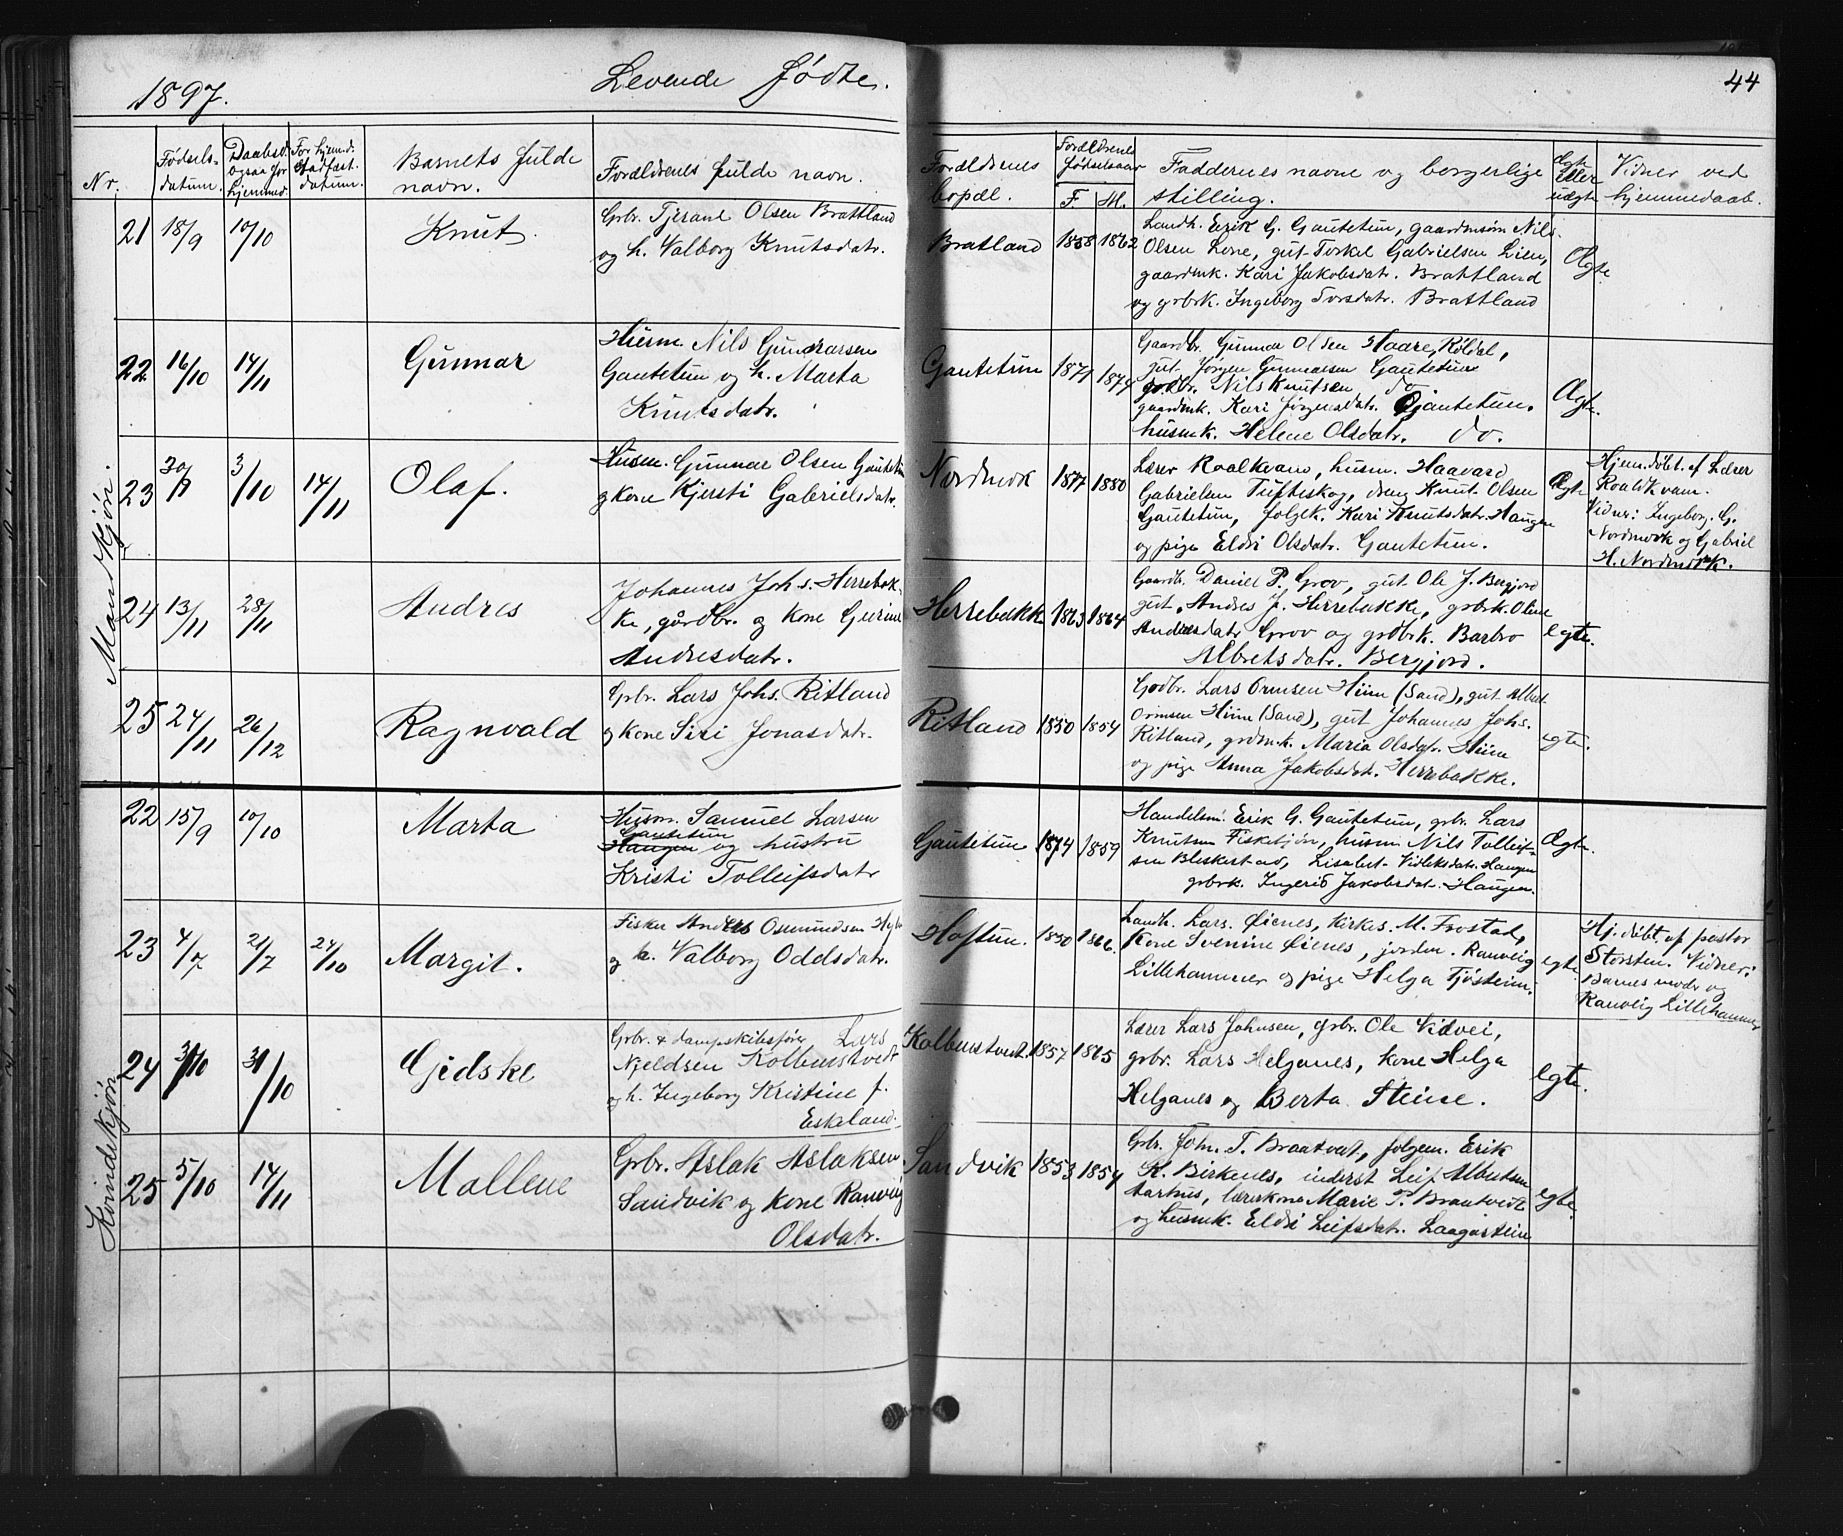 1897. Levende Fødte. 44
Nr. Fødsels-datum. Daabsd. ogsaa for hjemmed. For hjemmed. Stadfæst. datum. Barnets fulde navn. Forældrenes fulde navn. Forældrenes bopæl. Forældrenes fødselsaar F. M. Faddernes navne og borgerlige stilling. Ægte eller uægte Vidner ved hjemmedaab.
Mandkjøn.
21 18/9 10/10 Knut.
Grbr. Tjerand Olsen Brattland
og h. Valborg Knutsdatr.
Bratland 1858 1862
Landh. Erik G. Gautetun, gaardmsøn Nils
Olsen Lone, gut Torkel Gabrielsen Lien,
gaardmk. Kari Jakobsdatr. Brattland
og grbrk. Ingeborg Torsdatr. Brattland
Ægte
22 16/10 14/11 Gunnar
Husm. Nils Gunnarsen
Gautetun og h. Marta
Knutsdatr.
Gautetun 1871 1874
Gaardbr. Gunnar Olsen Haare, Röldal,
gut Jørgen Gunnarsen Gautetun
grdbr. Nils Knutsen do.
gaardmk. Kari Jørgensdatr. Gautetun.
husmk. Helene Olsdatr. do.
Ægte.
23 3/10 14/11 Olaf.
Husm. Gunnar Olsen Gautetun
og kone Kjersti Gabrielsdatr.
Nordmok 1877 1880
Lærer Roalkvam, husm. Haavard
Gabrielsen Tufteskog, dreng Knut Olsen
Gautetun, folgek. Kari Knutsdatr. Haugen
og pige Eldri Olsdatr. Gautetun.
Ægte
Hjem.døbt af Lærer
Roaldkvam.
Vidner: Ingeborg G.
Nordmork og Gabriel
H. Nordmork.
24 13/11 28/11 Andres
Johannes Johs. Herrebak-
ke, gårdbr. og kone Gurine
Andresdatr.
Herrebakk 1863 1864
Gaardbr. Daniel P. Grov, gut Ole J. Bergjord
gut, Andres J. Herrebakke, grbrk. Oline
Andresdatr Grov og grdbrk. Barbro
Albretsdatr. Bergjord.
egte.
25 24/11 26/12 Ragnvald
Grbr. Lars Johs. Ritland
og kone Siri Jonasdatr.
Ritland 1850 1854
Godbr. Lars Ormsen Hiim (Sand), gut Albert
Ormsen Hiim (Sand), gut Johannes Johs.
Ritland, grdmk. Maria Olsdatr. Hiim
og pige Anna Jakobsdatr. Herrebakke.
egte.
Kvindekjøn
22 15/9 10/10 Marta
Husm. Samuel Larsen
Gautetun
Haugen og hustru
Kristi Tolleifsdatr
Gautetun 1874 1859
Handelsm. Erik G. Gautetun, grbr. Lars
Knutsen Fiskebjön, husm. Nils Tolleif-
sen Bleskestad, Lisabet Vidleksdatr. Haugen
grbrk. Ingerid Jakobsdat. Haugen.
Ægte.
23 4/7 21/7 24/10 Margit.
Fisker Anders Osmundsen
og h. Valborg Oddsdatr.
Hoftun. 1850 1866.
Landh. Lars Øienes, kirkes. M. Frostad,
kone Svenine Øienes, jordm. Ranveig
Lillehammer og pige Helga Tjøsteim.
egte.
Hj. døbt af pastor
Storsten. Vidner:
Barnes moder og
Ranveig Lillehammer
24 31/10 Gidske
Grbr. & dampskibsfører Lars
Njeldsen Kolbenstvedt
og h. Ingeborg Kristine f.
Eskeland.
Kolbenstvedt. 1857 1865
Lærer Lars Johnsen, grbr. Ole Vidvei,
grbr. Lars Helganes, kone Helga
Helganes og Berta Steine.
egte.
25 5/10 14/11 Mallene
Grbr. Aslak Aslaksen
Sandvik og kone Ranveig
Olsdatr.
Sandvik 1853 1854
Grbr. John T. Braatveit, folgem. Erik
K. Birkenes, inderst Leif Albertsen
Aarhus, lærerkone Marie T. Braatveidt
og husmk. Eldri Leifsdatr. Laagastein
egte.